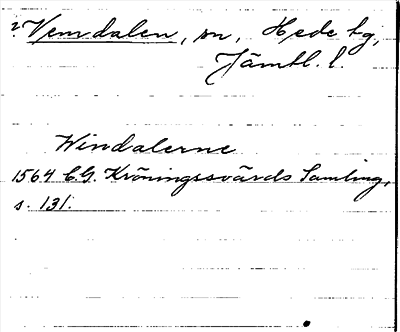 2 Vemdalen, sn, Hede tg,
Jämtl. l.
Windalerne
1564 C.G. Kröningssvärds Samling,
s. 131.